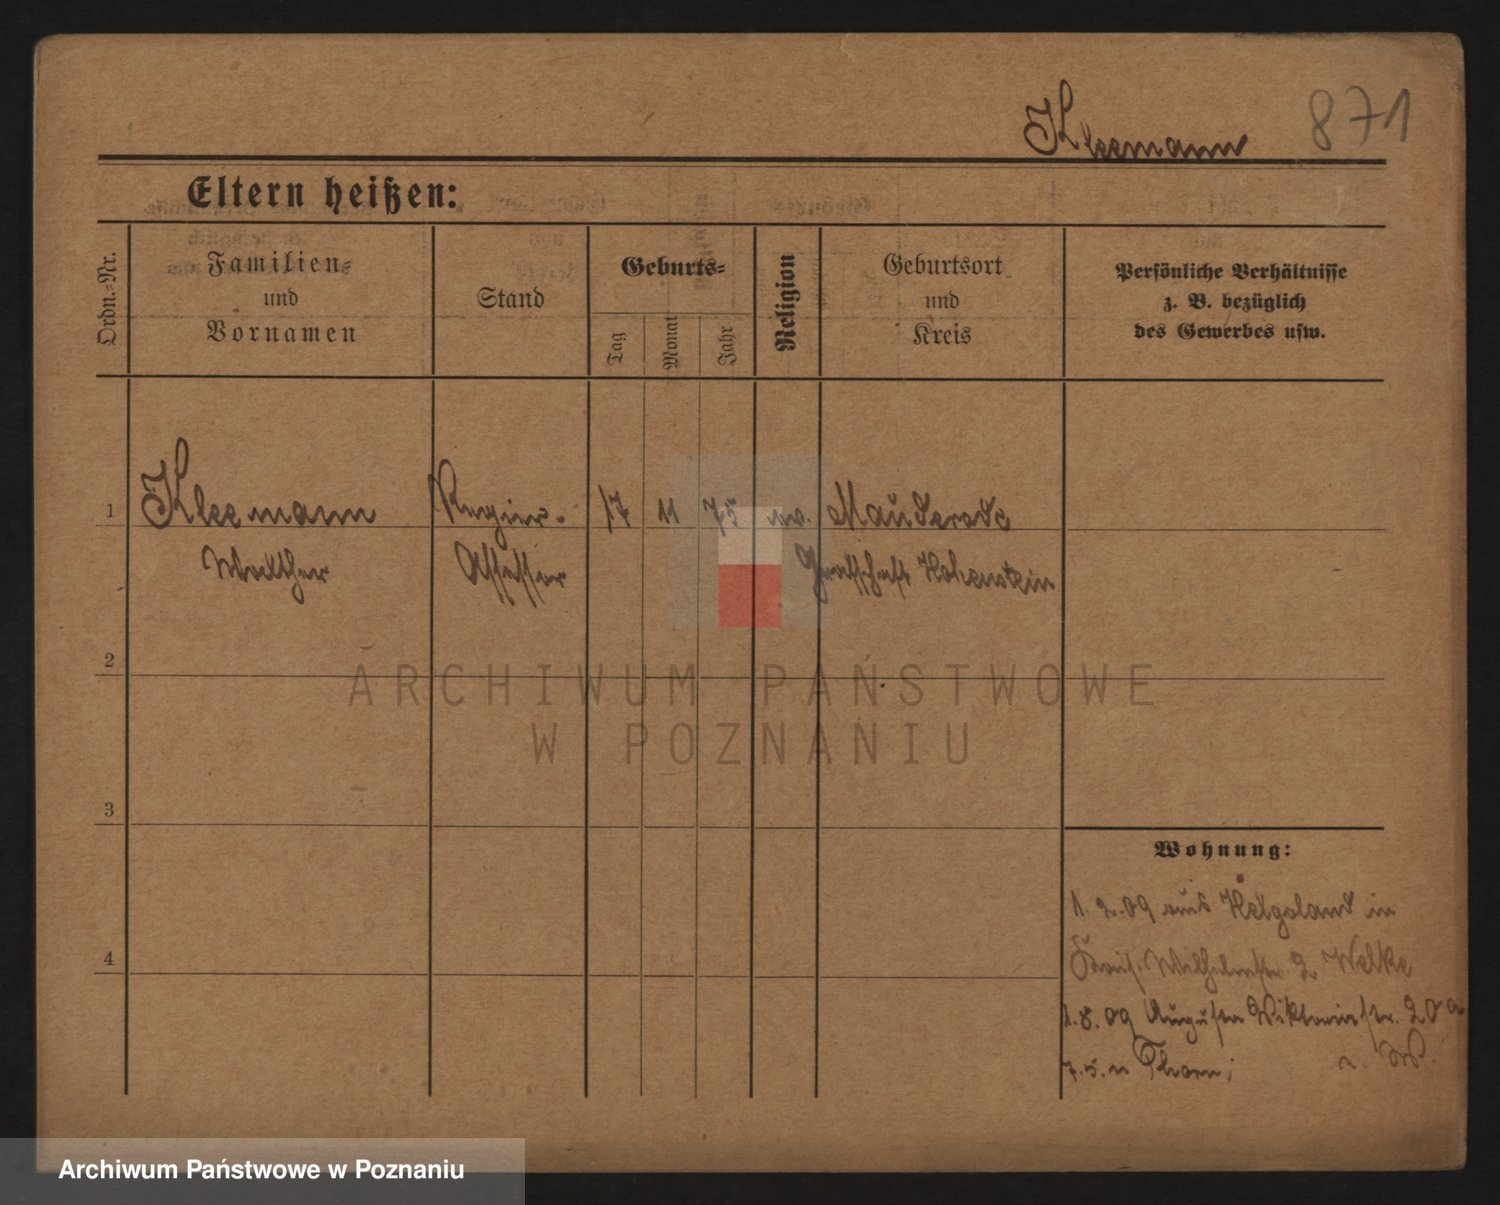 Kleemann 871
Eltern heißen:
Ordn.-Nr.
Familien-
und
Vornamen
Stand
Geburts-
Tag
Monat
Jahr
Religion
Geburtsort
und
Kreis
Persönliche Verhältnisse
z. B. bezüglich
des Gewerbes usw.
1 Kleemann Regier. 17 11 75 ev. Mauderode
Walther Assessor Grafschaft Hohenstein
2
3
4
Wohnung:
1. 2. 09 aus Helgoland in
Wilhelmstr 2 Welke
1. 8. 09 Augusta Viktoriastr. 20 a
Thorn
ARCHIWUM PAŃSTWOWE
W POZNANIU
Archiwum Państwowe w Poznaniu